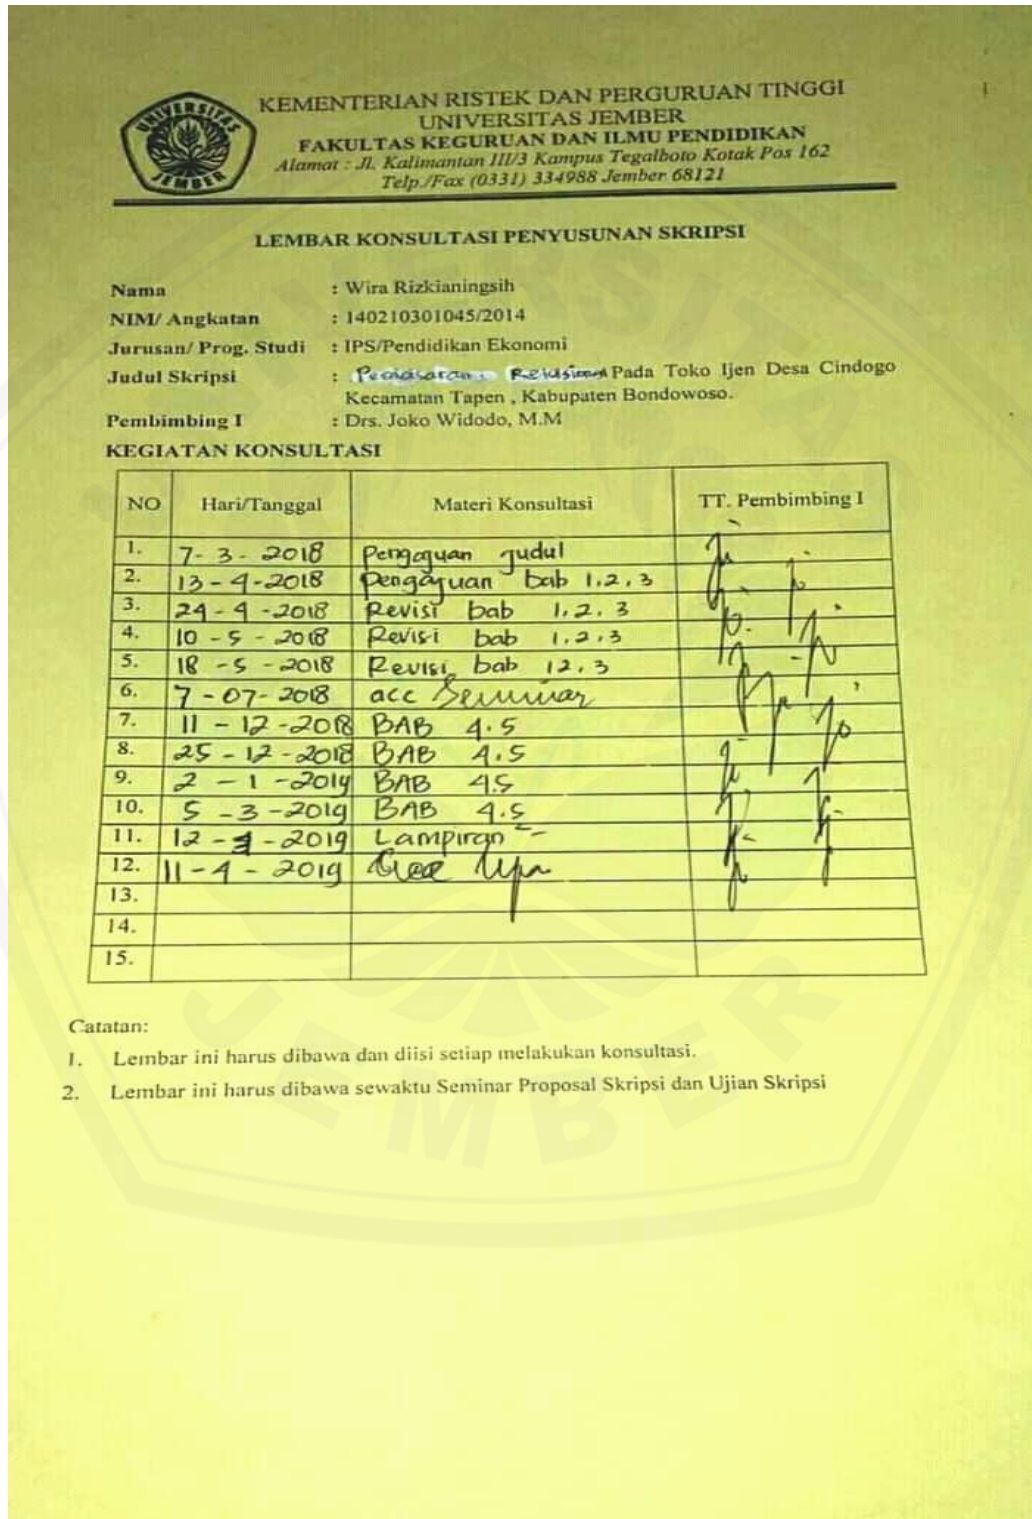 UNIVERSITAS
JEMBER
KEMENTERIAN RISTEK DAN PERGURUAN TINGGI
UNIVERSITAS JEMBER
FAKULTAS KEGURUAN DAN ILMU PENDIDIKAN
Alamat : Jl. Kalimantan III/3 Kampus Tegalboto Kotak Pos 162
Telp./Fax (0331) 334988 Jember 68121
LEMBAR KONSULTASI PENYUSUNAN SKRIPSI
Nama : Wira Rizkianingsih
NIM/ Angkatan : 140210301045/2014
Jurusan/ Prog. Studi : IPS/Pendidikan Ekonomi
Judul Skripsi : Pemasaran Pada Toko Ijen Desa Cindogo
Kecamatan Tapen , Kabupaten Bondowoso.
Pembimbing I : Drs. Joko Widodo, M.M
KEGIATAN KONSULTASI
NO Hari/Tanggal Materi Konsultasi TT. Pembimbing I
1. 7-3-2018 Pengajuan judul
2. 13-4-2018 Pengajuan bab 1.2.3
3. 24-4-2018 Revisi bab 1.2.3
4. 10-5-2018 Revisi bab 1.2.3
5. 18-5-2018 Revisi bab 12.3
6. 7-07-2018 acc Seminar
7. 11-12-2018 BAB 4.5
8. 25-12-2018 BAB 4.5
9. 2-1-2019 BAB 4.5
10. 5-3-2019 BAB 4.5
11. Lampiran
12. 11-4-2019
13.
14.
15.
Catatan:
1. Lembar ini harus dibawa dan diisi setiap melakukan konsultasi.
2. Lembar ini harus dibawa sewaktu Seminar Proposal Skripsi dan Ujian Skripsi